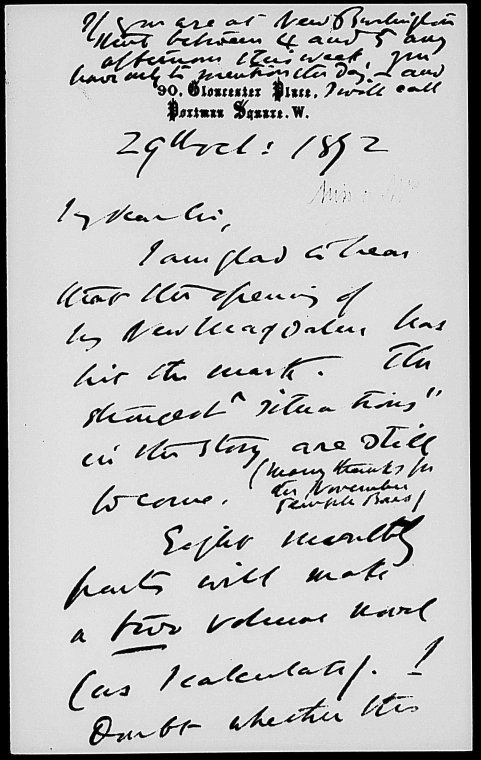 If you are at New Burlington
Street between 4 and 5 any
afternoon this week, you
have only to mention the day, and
90, Gloucester Place, I will call
Portman Square. W.
29th Oct: 1872
My dear Sir,
I am glad to hear
that the opening of
my New Magdalen has
hit the mark. The
strongest "situations"
in the story are still
to come. (Many thanks for
the November
Temple Bars)
Eight monthly
parts will make
a two volume novel
(as I calculate). I
doubt whether the